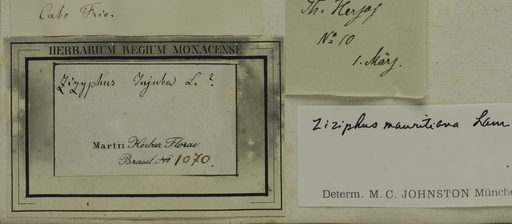 Cabo Frio.
HERBARIUM REGIUM MONACENSE
Zizyphus Jujuba L. ?
Martii Herbar. Florae
Brasil. No 1070.
Th. Herzog
No 10
1. März.
Ziziphus mauritiana Lam
Determ. M. C. JOHNSTON Münche